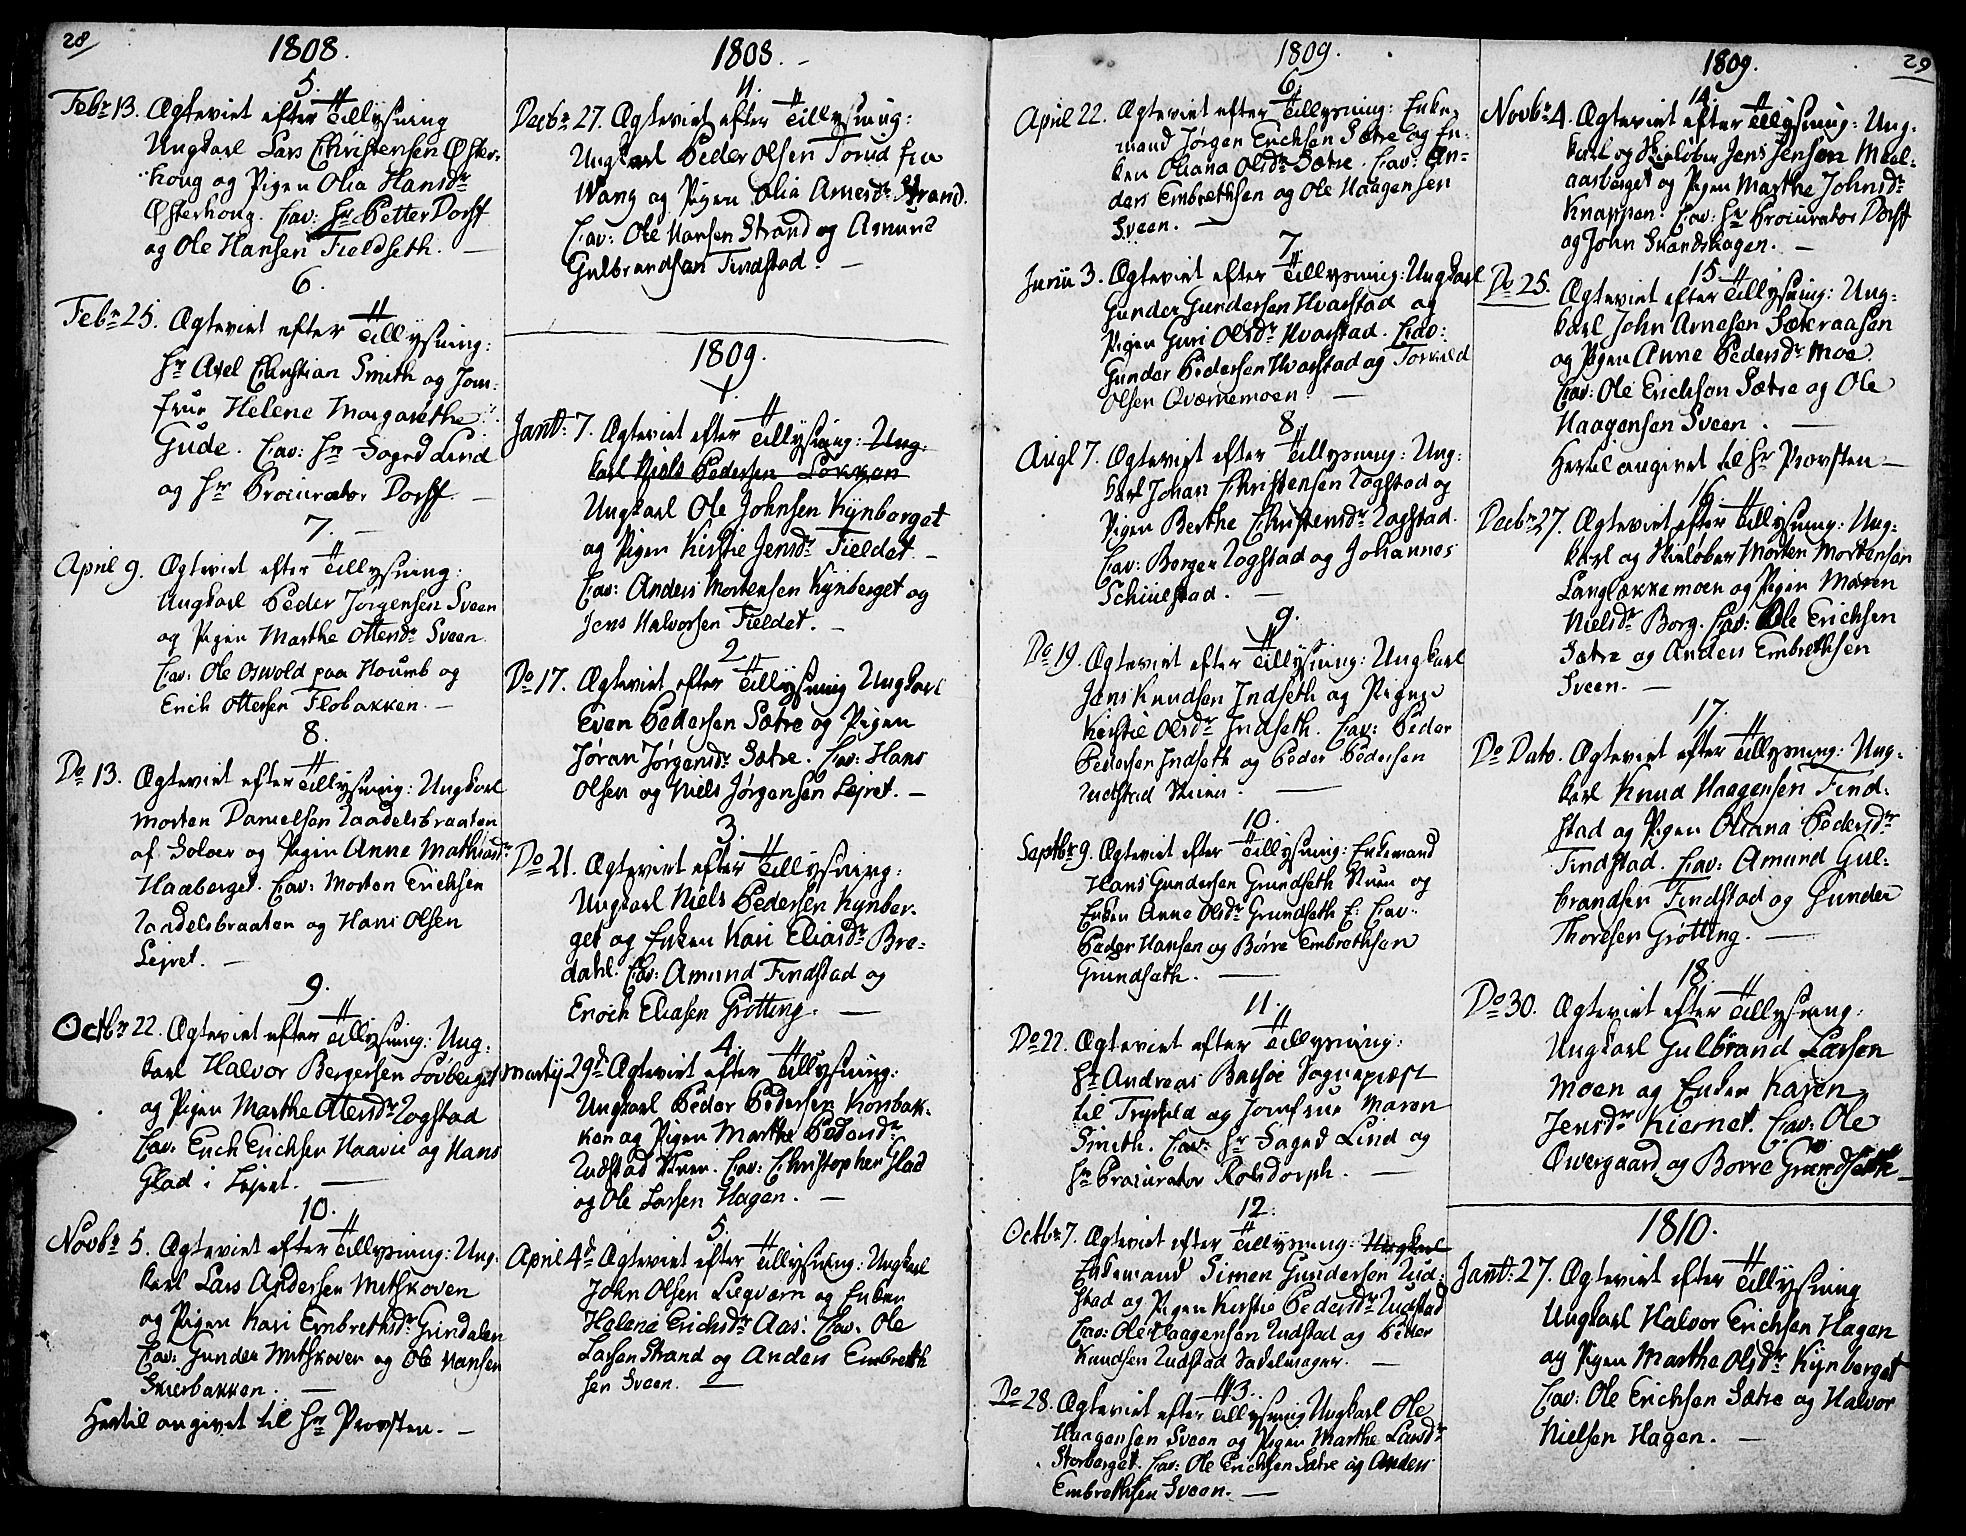 28/
1808.
5.
Febr 13. Ægteviet efter Tillysning
Ungkarl Lars Christensen Øster-
houg og Pigen Olia Hansdr
Østerhoug. Cav: Hr Petter Dorff
og Ole Hansen Fieldseth. —
6.
Febr 25. Ægteviet efter Tillysning:
Hr Axel Christian Smith og Jom-
frue Helene Margarethe
Gude. Cav: Hr Fogud Lind
og Hr Procurator Dorff. —
7. —
April 9. Ægteviet efter Tillysning:
Ungkarl Peder Jørgensen Sveen
og Pigen Marthe Ottersdr Sveen.
Cav: Ole Oswold paa Houmb og
Erich Ottersen Flobakken. —
8.
Do 13. Ægteviet efter Tillysning: Ungkarl
Morten Danielsen Zaadelsbraaten
af Soloer og Pigen Anne Mathiasdr
Haaberget. Cav: Morten Erichsen
Zandelsbraaten og Hans Olsen
Lejret. —
9.
Octbr 22. Ægteviet efter Tillysning: Ung-
karl Halvor Bergersen Løvberget
og Pigen Marthe Ottersdr Zogstad
Cav: Erich Erichsen Haavie og Hans
Glad i Lejret. —
10.
Novbr 5. Ægteviet efter Tillysning: Ung-
karl Lars Andersen Mitskoven
og Pigen Kari Embrethsdr Grindalen
Cav: Gunder Mitskoven og Ole Hansen
Skierbakken. —
Hertil angivet til Hr Provsten. —
1808. —
11.
Decbr 27. Ægteviet efter Tillysning:
Ungkarl Peder Olsen Torud fra
Wang og Pigen Olia Arnesdr Strand.
Cav: Ole Hansen Strand og Amund
Gulbrandsen Findstad. —
1809.
1.
Janr: 7. Ægteviet efter Tillysning: Ung-
karl Niels Pedersen Løkken
Ungkarl Ole Johnsen Kynberget
og Pigen Kirstie Jensdr Fieldet —
Cav: Anders Mortensen Kynberget og
Jens Halvorsen Fieldet. —
2.
Do 17. Ægteviet efter Tillysning Ungkarl
Even Pedersen Sætre og Pigen
Jøran Jørgensdr Sætre. Cav: Hans
Olsen og Niels Jørgensen Lejret. —
3.
Do 21. Ægteviet efter Tillysning:
Ungkarl Niels Pedersen Kynber-
get og Enken Kari Eliasdr Bre-
dahl. Cav: Amund Findstad og
Enoch Eliasen Grøtting. —
4.
Martij 29d Ægteviet efter Tillysning:
Ungkarl Peder Pedersen Konbak-
ken og Pigen Marthe Pedersdr
Zudstad Skuen. Cav: Christopher Glad
og Ole Larsen Hagen. —
5.
April 4d Ægteviet efter Tillysning: Ungkarl
John Olsen Liegværn og Enken
Helene Erichsdr Aas. Cav: Ole
Larsen Strand og Anders Embreth
sen Sveen. —
1809.
6.
April 22. Ægteviet efter Tillysning: Enke-
mand Jørgen Erichsen Sætre og En-
ken Oliana Olsdr Sætre. Cav: An-
ders Embrethsen og Ole Haagensen
Sveen. —
7.
Junii 3. Ægteviet efter Tillysning: Ungkarl
Gunder Gundersen Hvarstad og
Pigen Guri Olsdr Hvarstad. Cav:
Gunder Pedersen Hvarstad og Torkild
Olsen Qværnemoen. —
8.
Augl 7. Ægteviet efter Tillysning: Ung-
karl Johan Christensen Zogstad og
Pigen Berthe Christensdr Zogstad.
Cav: Berger Zogstad og Johannes
Schiulstad. —
9.
Do 19. Ægteviet efter Tillysning: Ungkarl
Jens Knudsen Indseth og Pigen
Kirstie Olsdr Indseth. Cav: Peder
Pedersen Indseth og Peder Pedersen
Zudstad Skuen. —
10.
Septbr 9. Ægteviet efter Tillysning: Enkemand
Hans Gundersen Grundseth Skuen og
Enken Anne Olsdr Grundseth E: Cav:
Peder Hansen og Børre Embrethsen
Grundseth. —
11.
Do 22. Ægteviet efter Tillysning:
Hr Andreas Balsøe Sognepræst
til Trysild og Jomfrue Maren
Smith. Cav: Hr Fogud Lind og
Hr Procurator Rolsdorph. —
12.
Octbr 7. Ægteviet efter Tillysning: Ungkarl
Enkemand Simen Gundersen Zud-
stad og Pigen Kirstie Pedersdr Zudstad
Cav: Ole Haagensen Zudstad og Petter
Knudsen Zudstad Sadelmager. —
13.
Do 28. Ægteviet efter Tillysning Ungkarl Ole
Haagensen Sveen og Pigen Marthe Larsdr
Storberget. Cav: Ole Erichsen Sætre og Anders
Embrethsen Sveen. —
29
1809.
14.
Novbr 4. Ægteviet efter Tillysning: Ung-
karl og Skieløber Jens Jensen Meel-
aasberget og Pigen Marthe Johnsdr
Knappen. Cav: Hr Procurator Dorff
og John Skandshagen. —
15.
Do 25. Ægteviet efter Tillysning: Ung-
karl John Arnesen Sæteraasen
og Pigen Anne Pedersdr Moe.
Cav: Ole Erichsen Sætre og Ole
Haagensen Sveen. —
Hertil angivet til Hr Provsten —
16.
Decbr 27. Ægteviet efter Tillysning: Ung-
karl og Skieløber Morten Mortensen
Langløkkemoen og Pigen Maren
Nielsdr Borg. Cav: Ole Erichsen
Sætre og Anders Embrethsen
Sveen. —
17.
Do Dato. Ægteviet efter Tillysning: Ung-
karl Knud Haagensen Find-
stad og Pigen Oliana Pedersdr
Findstad. Cav: Amund Gul-
brandsen Findstad og Gunder
Thoresen Grøtting. —
18.
Do 30. Ægteviet efter Tillysning:
Ungkarl Gulbrand Larsen
Moen og Enken Karen
Jensdr Kiernet. Cav: Ole
Øvergaard og Børre Grundseth —
1810.
Janr: 27. Ægteviet efter Tillysning
Ungkarl Halvor Erichsen Hagen
og Pigen Marthe Olsdr Kynberget
Cav: Ole Erichsen Sætre og Halvor
Nielsen Hagen. —